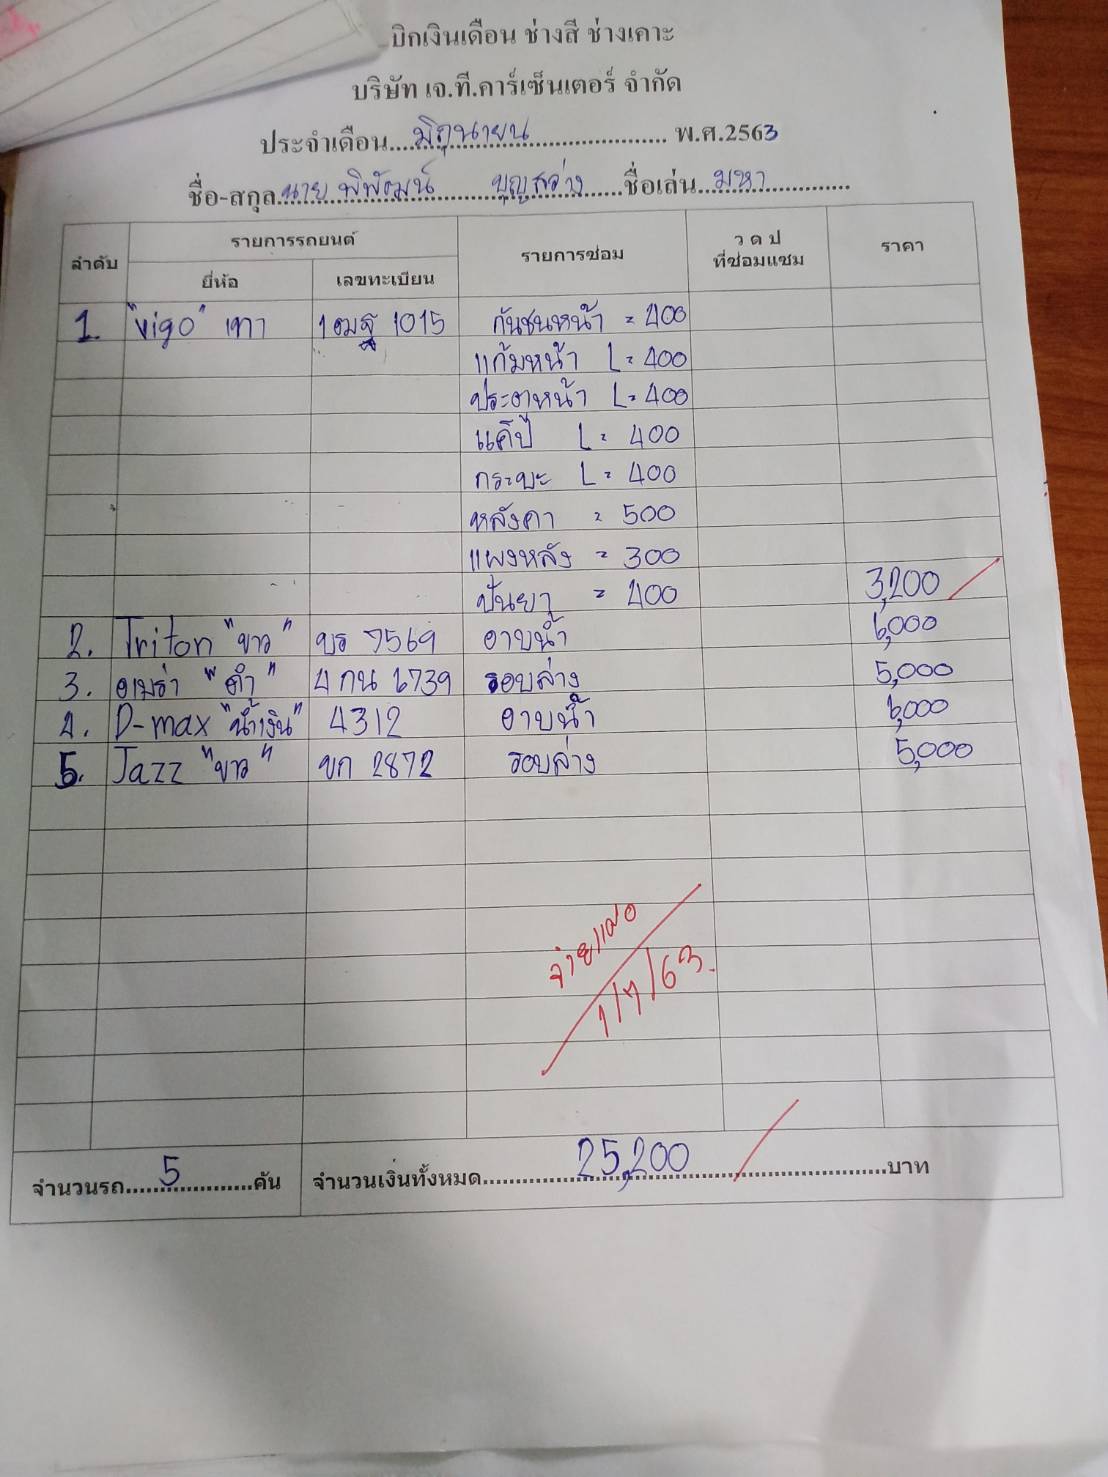 บิกเงินเดือน ช่างสี ช่างเคาะ
บริษัท เจ.ที.คาร์เซ็นเตอร์ จำกัด
ประจำเดือน....มิถุนายน.................... พ.ศ.2563
ชื่อ-สกุล.นาย พิพัฒน์ บุญสว่าง......ชื่อเล่น..มหา............
ลำดับ รายการรถยนต์ รายการซ่อม ว ด ป ที่ซ่อมแซม ราคา
ยี่ห้อ เลขทะเบียน
1. "vigo" เทา 1ฒฐ 1015 กันชนหน้า = 400
แก้มหน้า L = 400
ประตูหน้า L = 400
แค๊ป L = 400
กระบะ L = 400
หลังคา = 500
แผงหลัง = 300
ปั่นยา = 400 3,200
2. Triton "ขาว" บร 7569 อาบน้ำ 6,000
3. อเมร่า "ดำ" 4 กน 6739 รอบล่าง 5,000
4. D-max "น้ำเงิน" 4312 อาบน้ำ 6,000
5. Jazz "ขาว" ขก 2872 รอบล่าง 5,000
จ่ายแล้ว
1/7/63.
จำนวนรถ......5............คัน จำนวนเงินทั้งหมด..............25,200.........................บาท